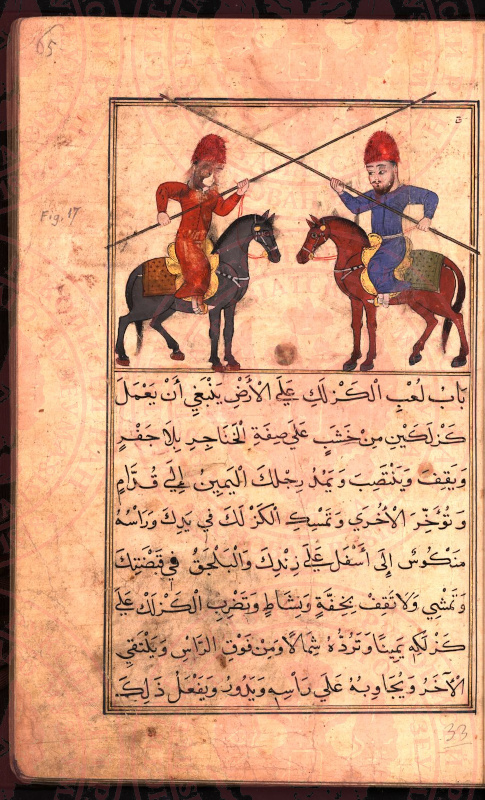 65
Fig. 17
بَابُ لُعْبِ الْكَزْلَكِ عَلَى الْأَرْضِ يَنْبَغِي أَنْ يَعْمَلَ
كَزْلَكَيْنِ مِنْ خَشَبٍ عَلَى صِفَةِ الْخَنَاجِرِ بِلَا جَفْرٍ
وَيَقِفُ وَيَنْتَصِبُ وَيَمُدُّ رِجْلَكَ الْيَمِينَ إِلَى قُدَّامٍ
وَتُؤَخِّرَ الْأُخْرَى وَتَمْسِكِ الْكَزْلَكَ فِي يَدِكَ وَرَأْسُهُ
مَنْكُوسٌ إِلَى أَسْفَلِ عَلَى زِنْدِكَ وَالْبَلْجَقُ فِي قَبْضَتِكَ
وَتَمْشِي وَلَا تَقِفْ بِخِفَّةٍ وَنِشَاطٍ وَتَضْرِبِ الْكَزْلَكَ عَلَى
كَزْلَكِهِ يَمِينًا وَتَرُدُّهُ شِمَالًا وَمِنْ فَوْقِ الرَّأْسِ وَيَلْتَقِي
الْآخَرُ وَيُجَاوِبُهُ عَلَى رَأْسِهِ وَيَدُورُ وَيَفْعَلُ ذَلِكَ
33